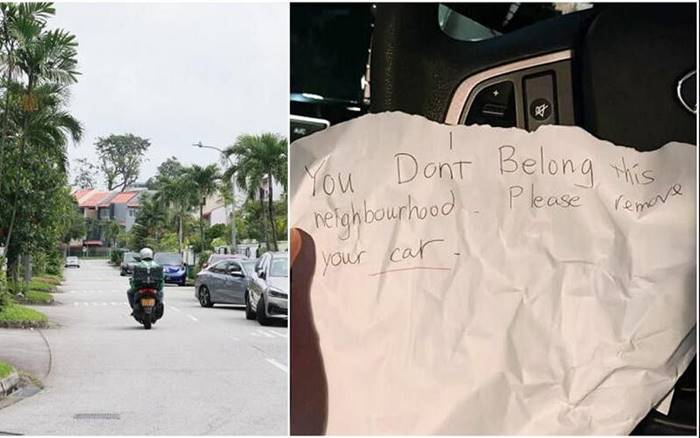 You Dont Belong this
neighbourhood. Please remove
your car.